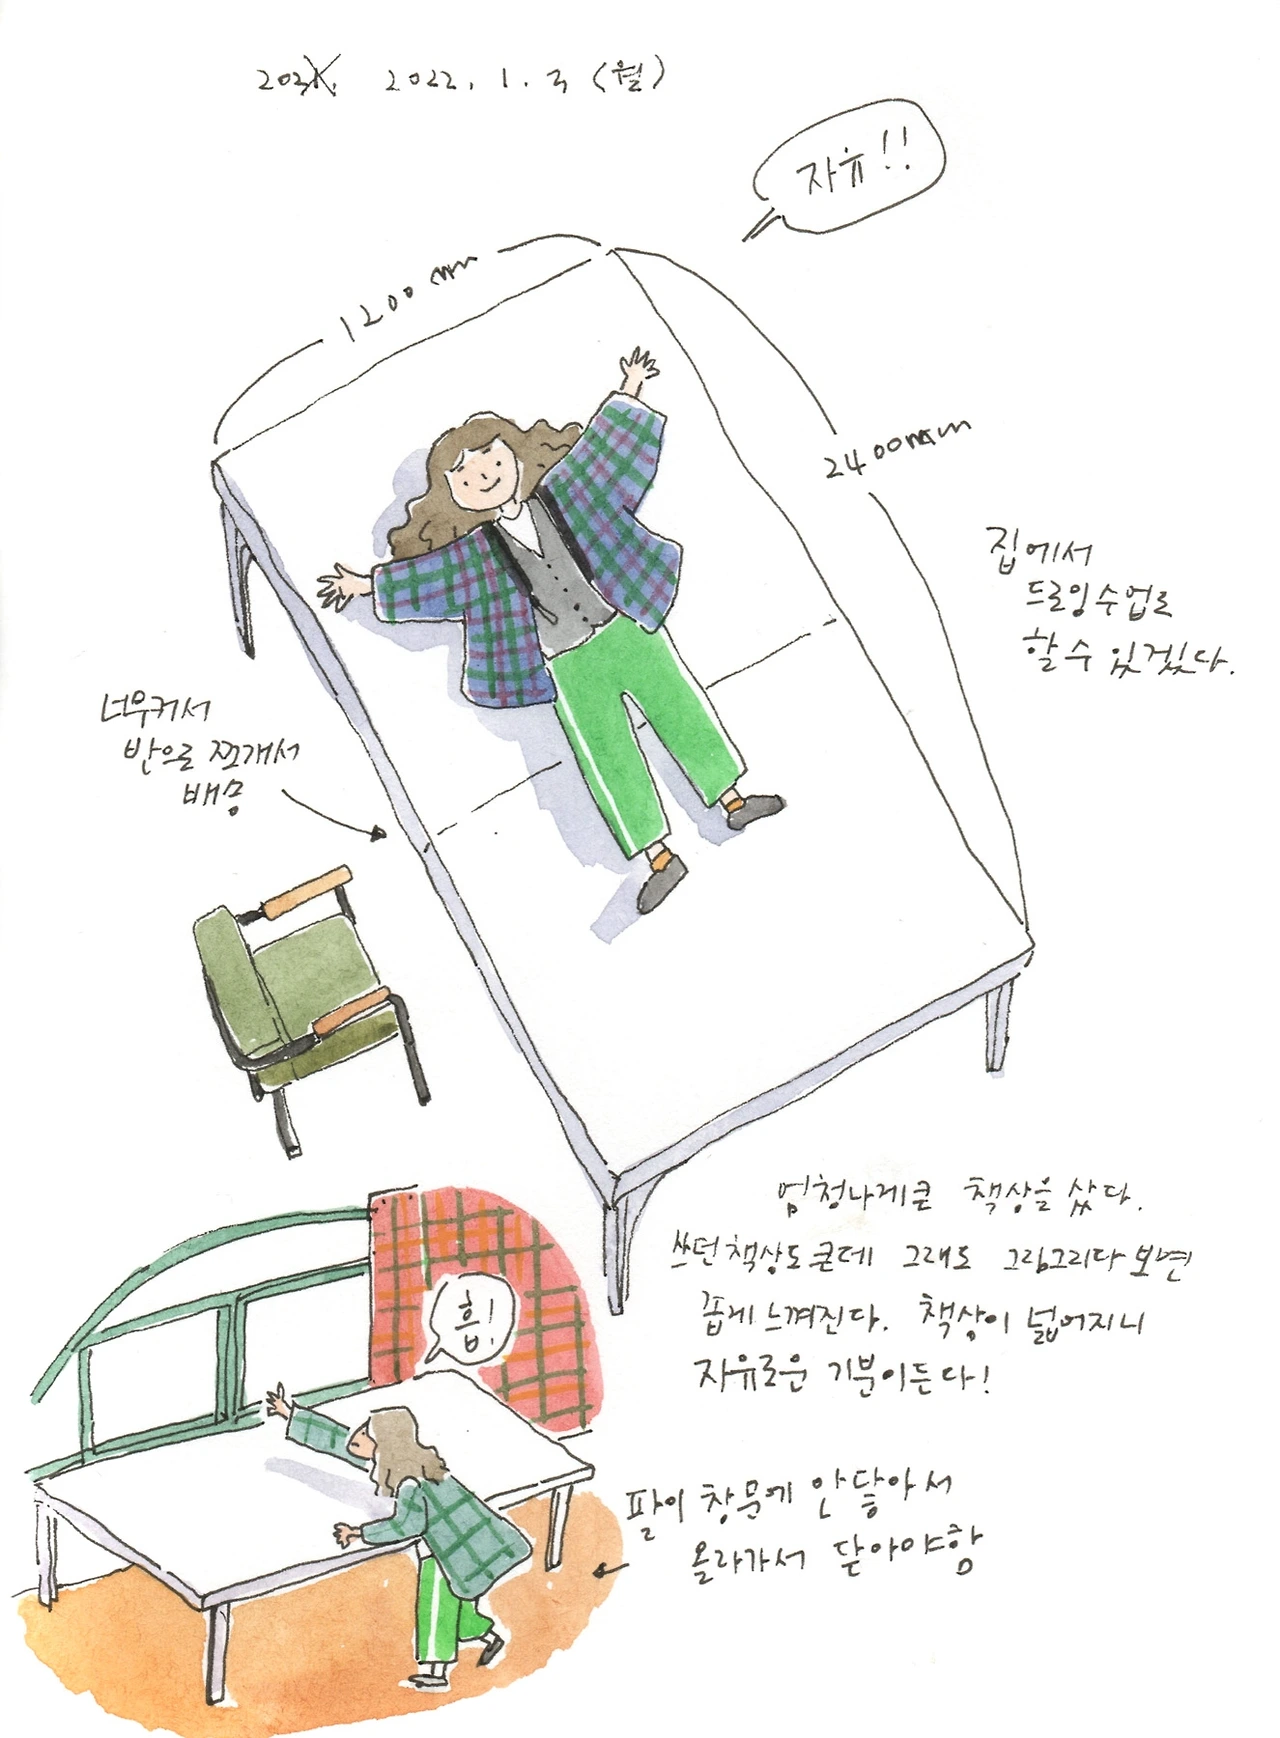 2021. 2022. 1. 3 (월)
자유!!
1200mm
2400mm
집에서
드로잉수업도
할 수 있겠다.
너무커서
반으로 쪼개서
배송
엄청나게큰 책상을 샀다.
쓰던책상도 큰데 그래도 그림그리다 보면
좁게 느껴진다. 책상이 넓어지니
자유로운 기분이든다!
흡!
팔이 창문에 안닿아서
올라가서 닫아야함